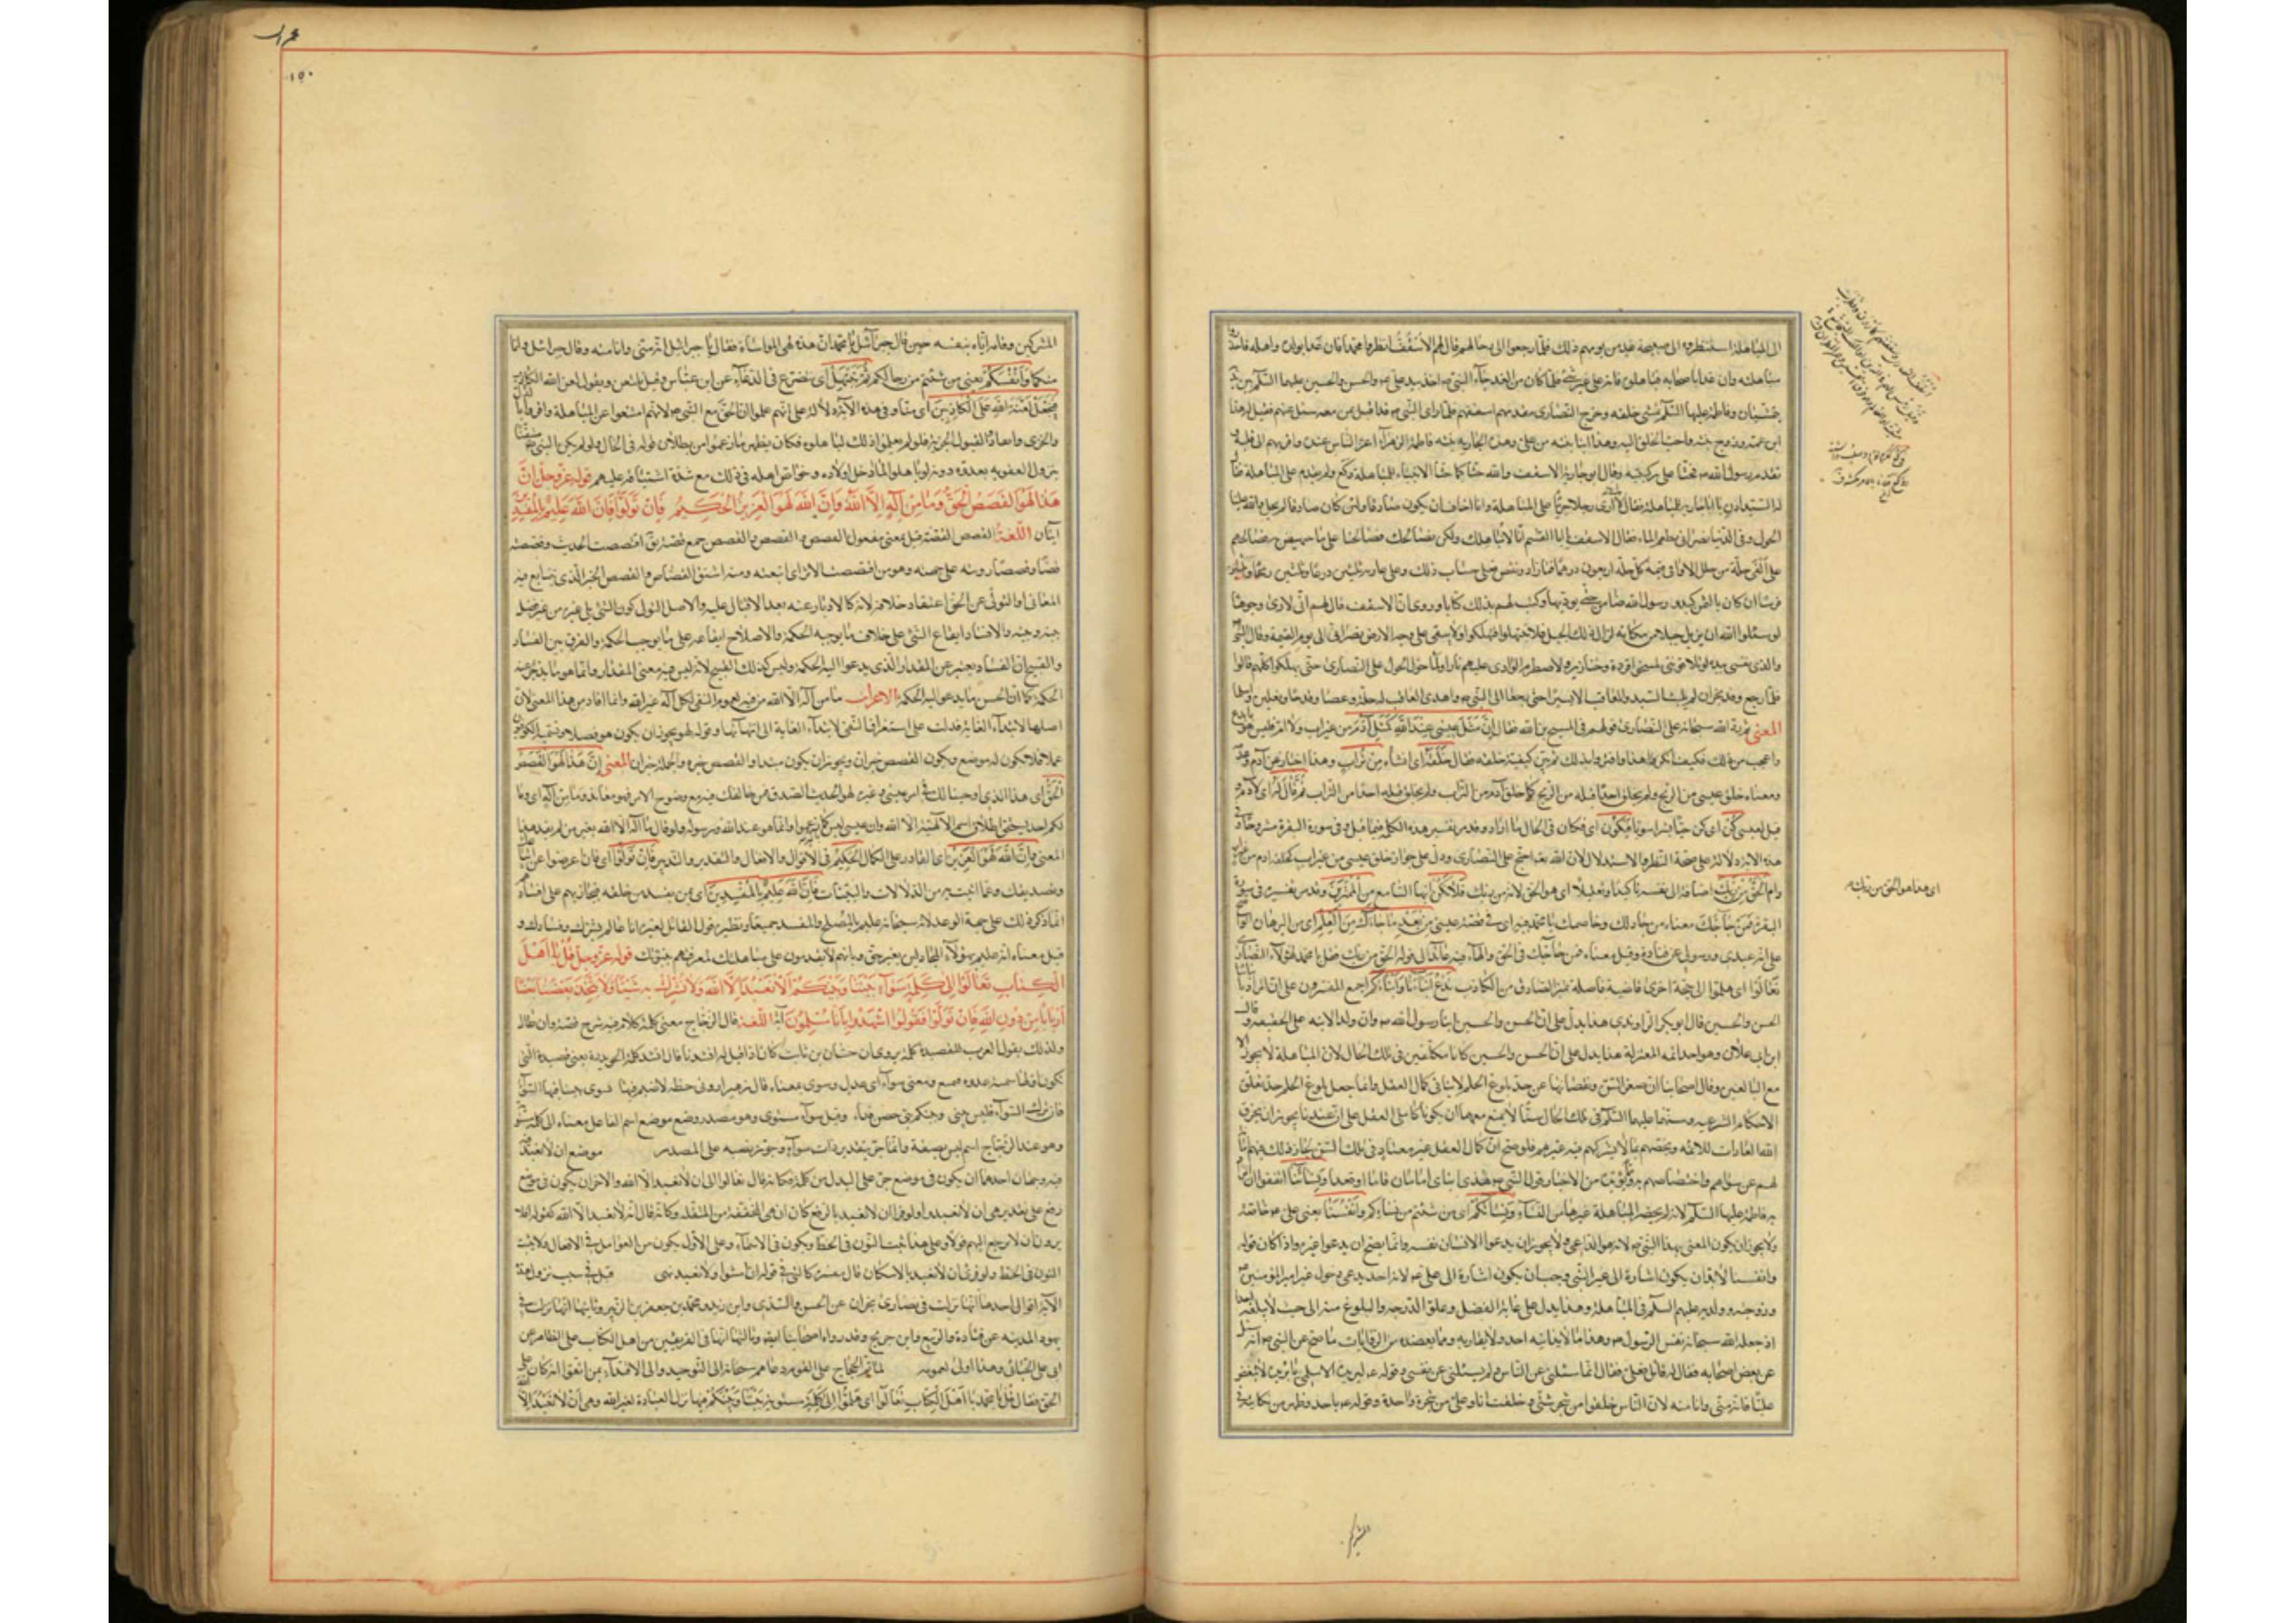 الى المباهلة استنظروه الى صبيحة غد من يومهم ذلك فلما رجعوا الى رحالهم قال لهم الاسقف انظروا محمدا فان غدا بولده واهله فاحذروا
مباهلته وان غدا باصحابه فباهلوه فانه على غير شئ فلما كان من الغد جاء النبي ص اخذ بيد علي ع والحسن والحسين عليهما السلام بين يديه
يمشيان وفاطمة عليها السلم تمشى خلفه وخرج النصارى يقدمهم اسقفهم فلما راى النبي ص قد اقبل بمن معه سئل عنهم فقيل له هذا
ابن عمه وزوج بنته واحب الخلق اليه وهذان ابنا بنته من علي وهذه الجارية بنته فاطمة اعز الناس عنده واقربهم الى قلبه و
تقدم رسول الله ص فجثا على ركبتيه وقال ابو حارثة الاسقف والله جثا كما جثا الانبياء للمباهلة فكع ولم يقدم على المباهلة فقال
له السيد ادن يا ابا حارثة للمباهلة فقال لا انى لارى رجلا جريا على المباهلة وانا اخاف ان يكون صادقا ولئن كان صادقا لم يحل والله علينا
الحول وفي الدنيا نصراني يطعم الماء فقال الاسقف يا ابا القسم انا لا نباهلك ولكن نصالحك فصالحنا على ما ننهض به فصالحهم
على الفي حلة من حلل الاواقي قيمة كل حلة اربعون درهما فما زاد ونقص فعلى حساب ذلك وعلى عارية ثلثين درعا وثلثين رمحا وثلثين
فرسا ان كان باليمن كيد ورسول الله ضامن حتى يؤديها وكتب لهم بذلك كتابا وروى ان الاسقف قال لهم انى لارى وجوها
لو سئلوا الله ان يزيل جبلا من مكانه لازاله فلا تبتهلوا فتهلكوا ولا يبقى على وجه الارض نصراني الى يوم القيمة وقال النبي ص
والذي نفسى بيده لو لاعنوني لمسخوا قردة وخنازير ولاضطرم الوادي عليهم نارا ولما حال الحول على النصارى حتى يهلكوا كلهم قالوا
فلما رجع وفد نجران لم يلبث السيد والعاقب الا يسيرا حتى رجعا الى النبي ص واهدى العاقب له حلة وعصا وقدحا ونعلين واسلما
المعنى ثم رد الله سبحانه على النصارى قولهم في المسيح ابن الله فقال ان مثل عيسى عند الله كمثل آدم من غير اب ولا ام فليس هو بابدع
واعجب من ذلك فكيف انكروا هذا واقروا بذلك ثم بين كيفية خلقه فقال خلقه اى انشاه من تراب وهذا اخبار عن آدم
ومعناه خلق عيسى من الريح ولم يخلق احدا قبله من الريح كما خلق آدم من التراب ولم يخلق قبله احدا من التراب ثم قال له اى لآدم و
قيل لعيسى كن اى كن حيا بشرا سويا فيكون اى فكان في الحال على ما اراد وقد مر تفسير هذه الكلمة فيما قبل في سورة البقرة مشروحا وفي
هذه الآية دلالة على صحة النظر والاستدلال لان الله تعه احتج على النصارى ودل على جواز خلق عيسى من غير اب كخلقه ادم من غير اب
وام الحق من ربك اضافه الى نفسه تاكيدا وتعليلا اى هو الحق لانه من ربك فلا تكن ايها السامع من الممترين وقد مر تفسيره في سورة
البقرة فمن حاجك معناه من جادلك وخاصمك يا محمد فيه اى في قصة عيسى من بعد ما جاءك من العلم اى من البرهان الواضح
على انه عبدى ورسولى عن قتادة وقيل معناه فمن حاجك في الحق والهاء فيه عائد الى قوله الحق من ربك فقل يا محمد لهؤلاء النصارى
تعالوا اى هلموا الى حجة اخرى قاضية فاصلة تميز الصادق من الكاذب ندع ابناءنا وابناءكم اجمع المفسرون على ان المراد بابناءنا
الحسن والحسين قال ابو بكر الرازي هذا يدل على ان الحسن والحسين ابنا رسول الله ص وان ولد الابنة على الحقيقة وقال
ابن ابي علان وهو احد ائمة المعتزلة هذا يدل على ان الحسن والحسين كانا مكلفين في تلك الحال لان المباهلة لا يجوز الا
مع البالغين وقال اصحابنا ان صغر السن ونقصانها عن حد بلوغ الحلم لا ينافي كمال العقل وانما جعل بلوغ الحلم حدا لتعلق
الاحكام الشرعيه وسنهما عليهما السلم في تلك الحال سنا لا يمتنع معهما ان يكونا كاملى العقل على ان عندنا يجوز ان يخرق
الله العادات للائمة ويخصهم بما لا يشركهم فيه غيرهم فلو صح ان كمال العقل غير معتاد في تلك السن لجاز ذلك فيهم ابانة
لهم عن سواهم واختصاصهم به ويؤيده من الاخبار قول النبي ص هذان ابناى امامان قاما او قعدا ونساءنا اتفقوا ان المراد
به فاطمة عليها السلم لانه لم يحضر المباهلة غيرها من النساء ونساءكم اى من شئتم من نسائكم وانفسنا يعنى علي ع خاصة
ولا يجوز ان يكون المعنى بهذا النبي ص لانه هو الداعى ولا يجوز ان يدعوا الانسان نفسه وانما يصح ان يدعوا غيره واذا كان قوله
وانفسنا لا بد ان يكون اشارة الى غير النبي وجب ان يكون اشارة الى علي ع لانه لا احد يدعى دخول غير امير المؤمنين
وزوجته وولديه عليهم السلم في المباهلة وهذا يدل على غاية الفضل وعلو الدرجه والبلوغ منه الى حيث لا يبلغه احد
اذ جعله الله سبحانه نفس الرسول ص وهذا ما لا يدانيه احد ولا يقاربه ومما يعضده من الروايات ما صح عن النبي ص انه سئل
عن بعض اصحابه فقال له قائل فعلي فقال انما سئلتنى عن الناس ولم تسئلنى عن نفسى وقوله ع لبريدة الاسلمى يا بريدة لا تبغض
عليا فانه منى وانا منه لان الناس خلقوا من شجر شتى وخلقت انا وعلي من شجرة واحدة وقوله ع باحد وقد ظهر من نكايته في
اى هذا هو الحق من ربك
المشركين
١٥٠
المشركين ووقايته اياه بنفسه حين قال جبرائيل يا محمد ان هذه لهى المواساة فقال يا جبرائيل انه منى وانا منه وقال جبرائيل وانا
منكما وانفسكم يعنى من شئتم من رجالكم ثم نبتهل اى نتضرع في الدعاء عن ابن عباس وقيل نلتعن ونقول لعن الله الكاذب
فنجعل لعنة الله على الكاذبين اى منا وفي هذه الآية دلالة على انهم علموا ان الحق مع النبي ص لانهم امتنعوا عن المباهلة واقروا بالذل
والخزى وانقادوا لقبول الجزية فلو لم يعلموا ذلك لباهلوه فكان يظهر ما زعموا من بطلان قوله في الحال ولو لم يكن النبي ص متيقنا
بنزول العقوبة بعدوه دونه لو باهلوا لما ادخل اولاده وخواص اهله في ذلك مع شدة اشفاقه عليهم قوله عز وجل ان
هذا لهو القصص الحق وما من اله الا الله وان الله لهو العزيز الحكيم فان تولوا فان الله عليم بالمفسدين
آيتان اللغة القصص القصة فعل بمعنى مفعول والقصص جمع قصة يق اقتصصت الحديث وقصصته
قصا وقصصا رويته على جهته وهو من اقتصصت الاثر اى اتبعته ومنه اشتق القصاص والقصص الخبر الذى تتابع فيه
المعانى والتولى عن الحق اعتقاد خلافه لانه كالادبار عنه بعد الاقبال عليه والاصل التولى كون الشئ يلى غيره من غير فصل
بينه وبينه والافساد ايقاع الشئ على خلاف ما يوجبه الحكمة والاصلاح ايقاعه على ما يوجب الحكمة والفرق بين الفساد
والقبيح ان الفساد يغير عن المقدار الذى يدعوا اليه الحكمة وليس كذلك القبيح لانه ليس فيه معنى المقدار وانما هو ما يزجر عنه
الحكمة كما ان الحسن ما يدعو اليه الحكمة الاعراب ما من اله الا الله من فيه لعموم النفى لكل اله غير الله وانما افاد من هذا المعنى لان
اصلها لابتداء الغاية فدلت على استغراق النفى لابتداء الغاية الى انتهائها وقوله لهو يجوز ان يكون هو فصلا ويسميه الكوفيون
عمادا فلا يكون له موضع ويكون القصص خبر ان ويجوز ان يكون مبتدا والقصص خبره والجملة خبر ان المعنى ان هذا لهو القصص
الحق اى هذا الذى اوحينا اليك في امر عيسى ع وغيره لهو الحديث الصدق فمن خالفك فيه مع وضوح الامر فهو معاند وما من اله اى وما
لكم احد يستحق اطلاق اسم الالهية الا الله وان عيسى ليس كما زعموا وانما هو عبد الله ورسوله ولو قال ما اله الا الله بغير من لم يفد هذا
المعنى وان الله لهو العزيز اى القادر على الكمال الحكيم في الاقوال والافعال والتقدير والتدبير فان تولوا اى فان اعرضوا عن اتباعك
وتصديقك وعما اتيت به من الدلالات والبينات فان الله عليم بالمفسدين اى بمن يفسد من خلقه فيجازيهم على افسادهم و
انما ذكر ذلك على جهة الوعيد لانه سبحانه عليم بالمصلح والمفسد جميعا ونظيره قول القائل لغيره انا عالم بشرك وفسادك و
قيل معناه انه عليم بهؤلاء المجادلين بغير حق وبانهم لا يقدمون على مباهلتك لمعرفتهم بنبوتك قوله عز وجل قل يا اهل
الكتاب تعالوا الى كلمة سواء بيننا وبينكم الا نعبد الا الله ولا نشرك به شيئا ولا يتخذ بعضنا بعضا
اربابا من دون الله فان تولوا فقولوا اشهدوا بانا مسلمون آية اللغة قال الزجاج معنى كلمة كلام فيه شرح قصة وان طال
ولذلك يقول العرب للقصيدة كلمة يروى ان حسان بن ثابت كان اذا قيل له انشدنا قال انشد كلمة الحويدرة يعنى قصيدة التي
ومعنى سواء اى عدل وسوى بمعناه قال زهير اروني خطة لا ضيم فيها يسوى بيننا فيها السواء
فان ترك السواء فليس بينى وبينكم بنى حصن بقاء وقيل سواء مستوى وهو مصدر وضع موضع اسم الفاعل معناه الى كلمة مستوية
وهو عند الزجاج اسم ليس بصفة وانما جر بتقدير ذات سواء وجوز نصبه على المصدر موضع ان لا نعبد
فيه وجهان احدهما ان يكون في موضع جر على البدل من كلمة فكانه قال تعالوا الى ان لا نعبد الا الله والاخر ان يكون في موضع
رفع على تقدير هى ان لا نعبد ولو قرئ ان لا نعبد بالرفع كان ان هى المخففة من المثقلة وكانه قال انه لا نعبد الا الله كقوله افلا
يرون ان لا يرجع اليهم قولا وعلى هذا يثبت النون في الخط ويكون في الاسماء وعلى الاول يكون من العوامل في الافعال ولا يثبت
النون في الخط ولو قرئ ان لا نعبد بالاسكان فان مفسرة كالتى في قوله ان امشوا ولا نعبد نهى قيل في سبب نزول هذه
الآية اقوال احدها انها نزلت في نصارى نجران عن الحسن والسدى وابن زيد ومحمد بن جعفر بن الزبير وثانيها انها نزلت في
يهود المدينه عن قتادة والربيع وابن جريج وقد رواه اصحابنا ايضا وثالثها انها في الفريقين من اهل الكتاب على الظاهر عن
ابى على الجبائى وهذا اولى لعمومه لما تم الحجاج على القوم دعاهم سبحانه الى التوحيد والى الاقتداء بمن اتفق انه كان على
الحق فقال قل يا محمد يا اهل الكتاب تعالوا اى هلموا الى كلمة سواء بيننا وبينكم فيها ترك العبادة لغير الله وهى ان لا نعبد الا